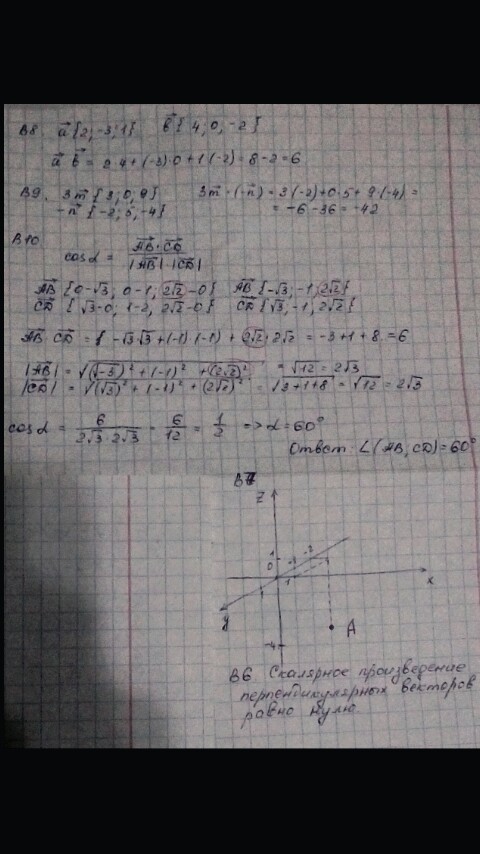 B8 a⃗ {2; -3; 1} b⃗ { 4; 0; -2 }
a⃗ b⃗ = 2·4 + (-3)·0 + 1·(-2) = 8 - 2 = 6
B9. 3m⃗ { 3; 0; 9 } 3m⃗ · (-n⃗) = 3(-2) + 0·5 + 9·(-4) =
-n⃗ { -2; 5; -4 } = -6 - 36 = -42
B10
cos α = AB⃗ · CD⃗ / |AB⃗| · |CD⃗|
AB⃗ { 0-√3; 0-1; 2√2-0 } AB⃗ { -√3; -1; 2√2 }
CD⃗ { √3-0; 1-2; 2√2-0 } CD⃗ { √3; -1; 2√2 }
AB⃗ · CD⃗ = { -√3·√3 + (-1)·(-1) + 2√2 · 2√2 = -3 + 1 + 8 = 6
|AB⃗| = √((-√3)² + (-1)² + (2√2)²) = √12 = 2√3
|CD⃗| = √((√3)² + (-1)² + (2√2)²) = √3+1+8 = √12 = 2√3
cos α = 6 / 2√3 · 2√3 = 6/12 = 1/2 => α = 60°
Ответ: ∠(AB, CD) = 60°
B7
z
1 -1 -2
0
1 x
1
y
A
-4
B6 Скалярное произведение
перпендикулярных векторов
равно нулю.